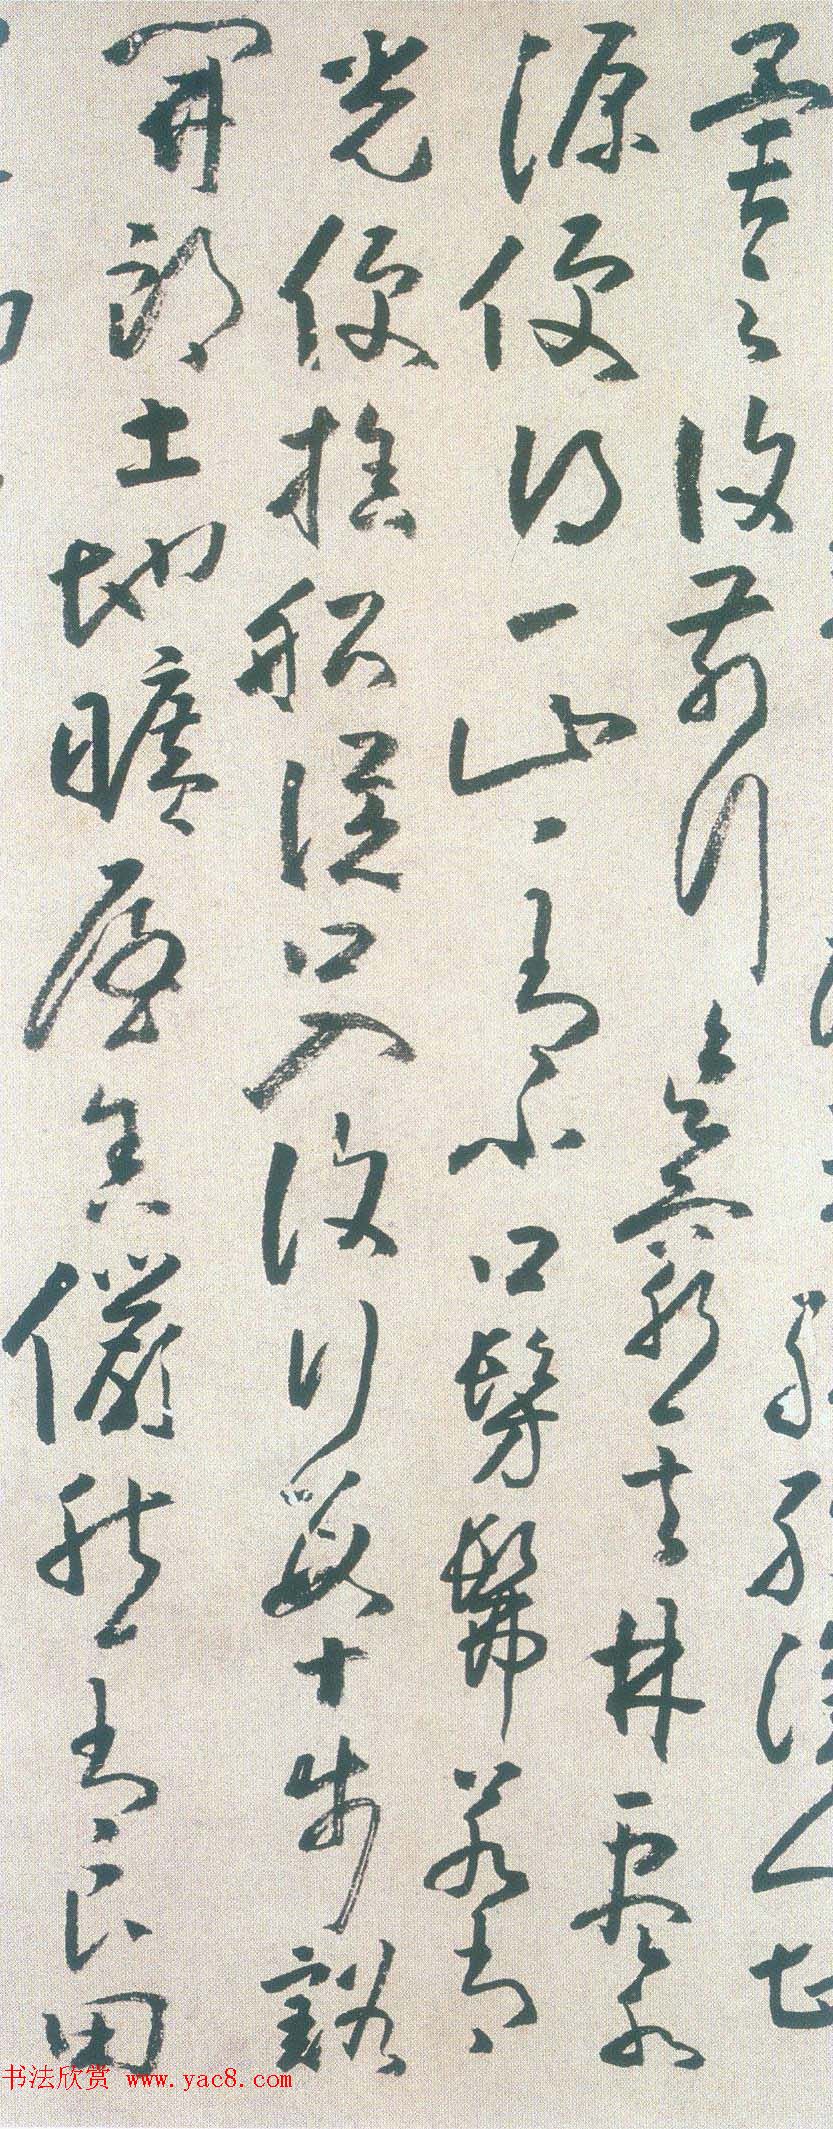 異之復前行欲窮其林盡水
源便得一山〻有小口髣髴若有
光便捨船從口入復行數十步豁
開朗土地曠屋舍儼然有良田
书法欣赏 www.yac8.com